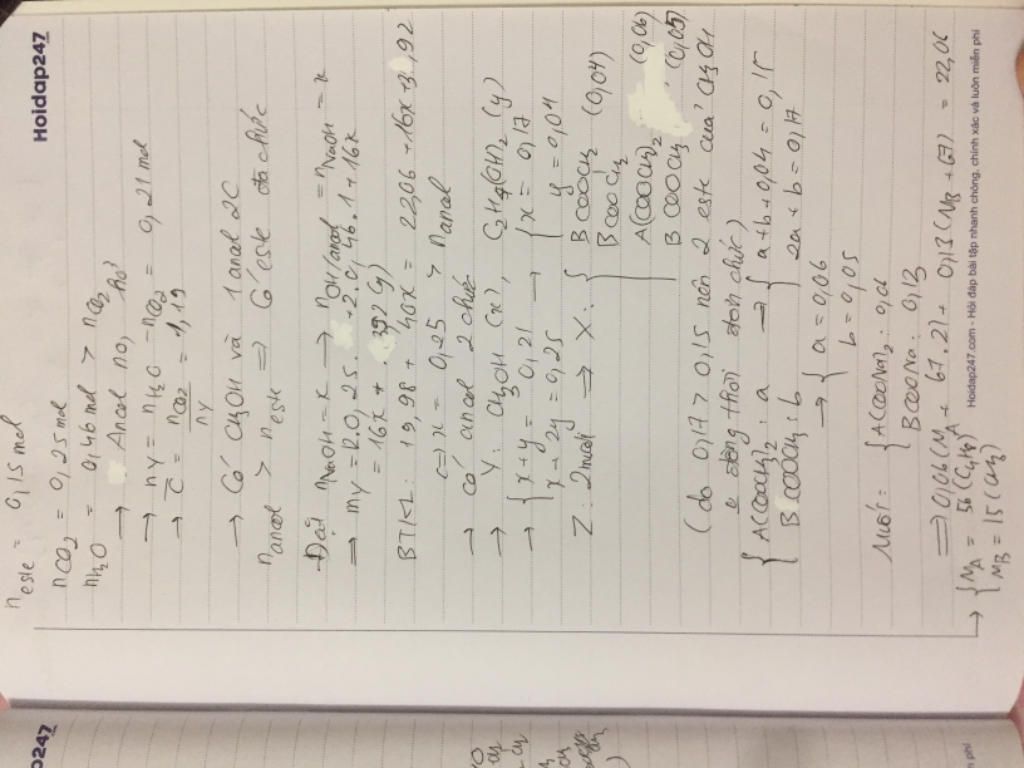 Hoidap247
n este = 0,15 mol
nCO2 = 0,25 mol
nH2O = 0,46 mol > nCO2
→ Ancol no, hở
→ nY = nH2O - nCO2 = 0,21 mol
→ C̅ = nCO2/nY = 1,19
→ Có CH3OH và 1 ancol 2C
n ancol > n este ⇒ Có este đa chức
Đặt nNaOH = x → nOH/ancol = nNaOH = x
⇒ mY = 12.0,25 + 2.0,46.1 + 16x
= 16x + 3,92 (g)
BTKL: 19,98 + 40x = 22,06 + 16x + 3,92
⇔ x = 0,25 > n ancol
→ có ancol 2 chức
→ Y: CH3OH (x), C2H4(OH)2 (y)
→ { x + y = 0,21
x + 2y = 0,25
→ { x = 0,17
y = 0,04
Z: 2 muối ⇒ X: { BCOOCH2
BCOOCH2 (0,04)
A(COOCH3)2 (0,06)
BCOOCH3 (0,05)
(do 0,17 > 0,15 nên 2 este của CH3OH
đồng thời đơn chức)
{ A(COOCH3)2: a
BCOOCH3: b
→ { a + b + 0,04 = 0,15
2a + b = 0,17
→ { a = 0,06
b = 0,05
Muối: { A(COONa)2: 0,06
BCOONa: 0,13
⇒ 0,06(MA + 67.2) + 0,13(MB + 67) = 22,06
→ { MA = 56 (C4H8)
MB = 15 (CH3)
Hoidap247.com - Hỏi đáp bài tập nhanh chóng, chính xác và luôn miễn phí